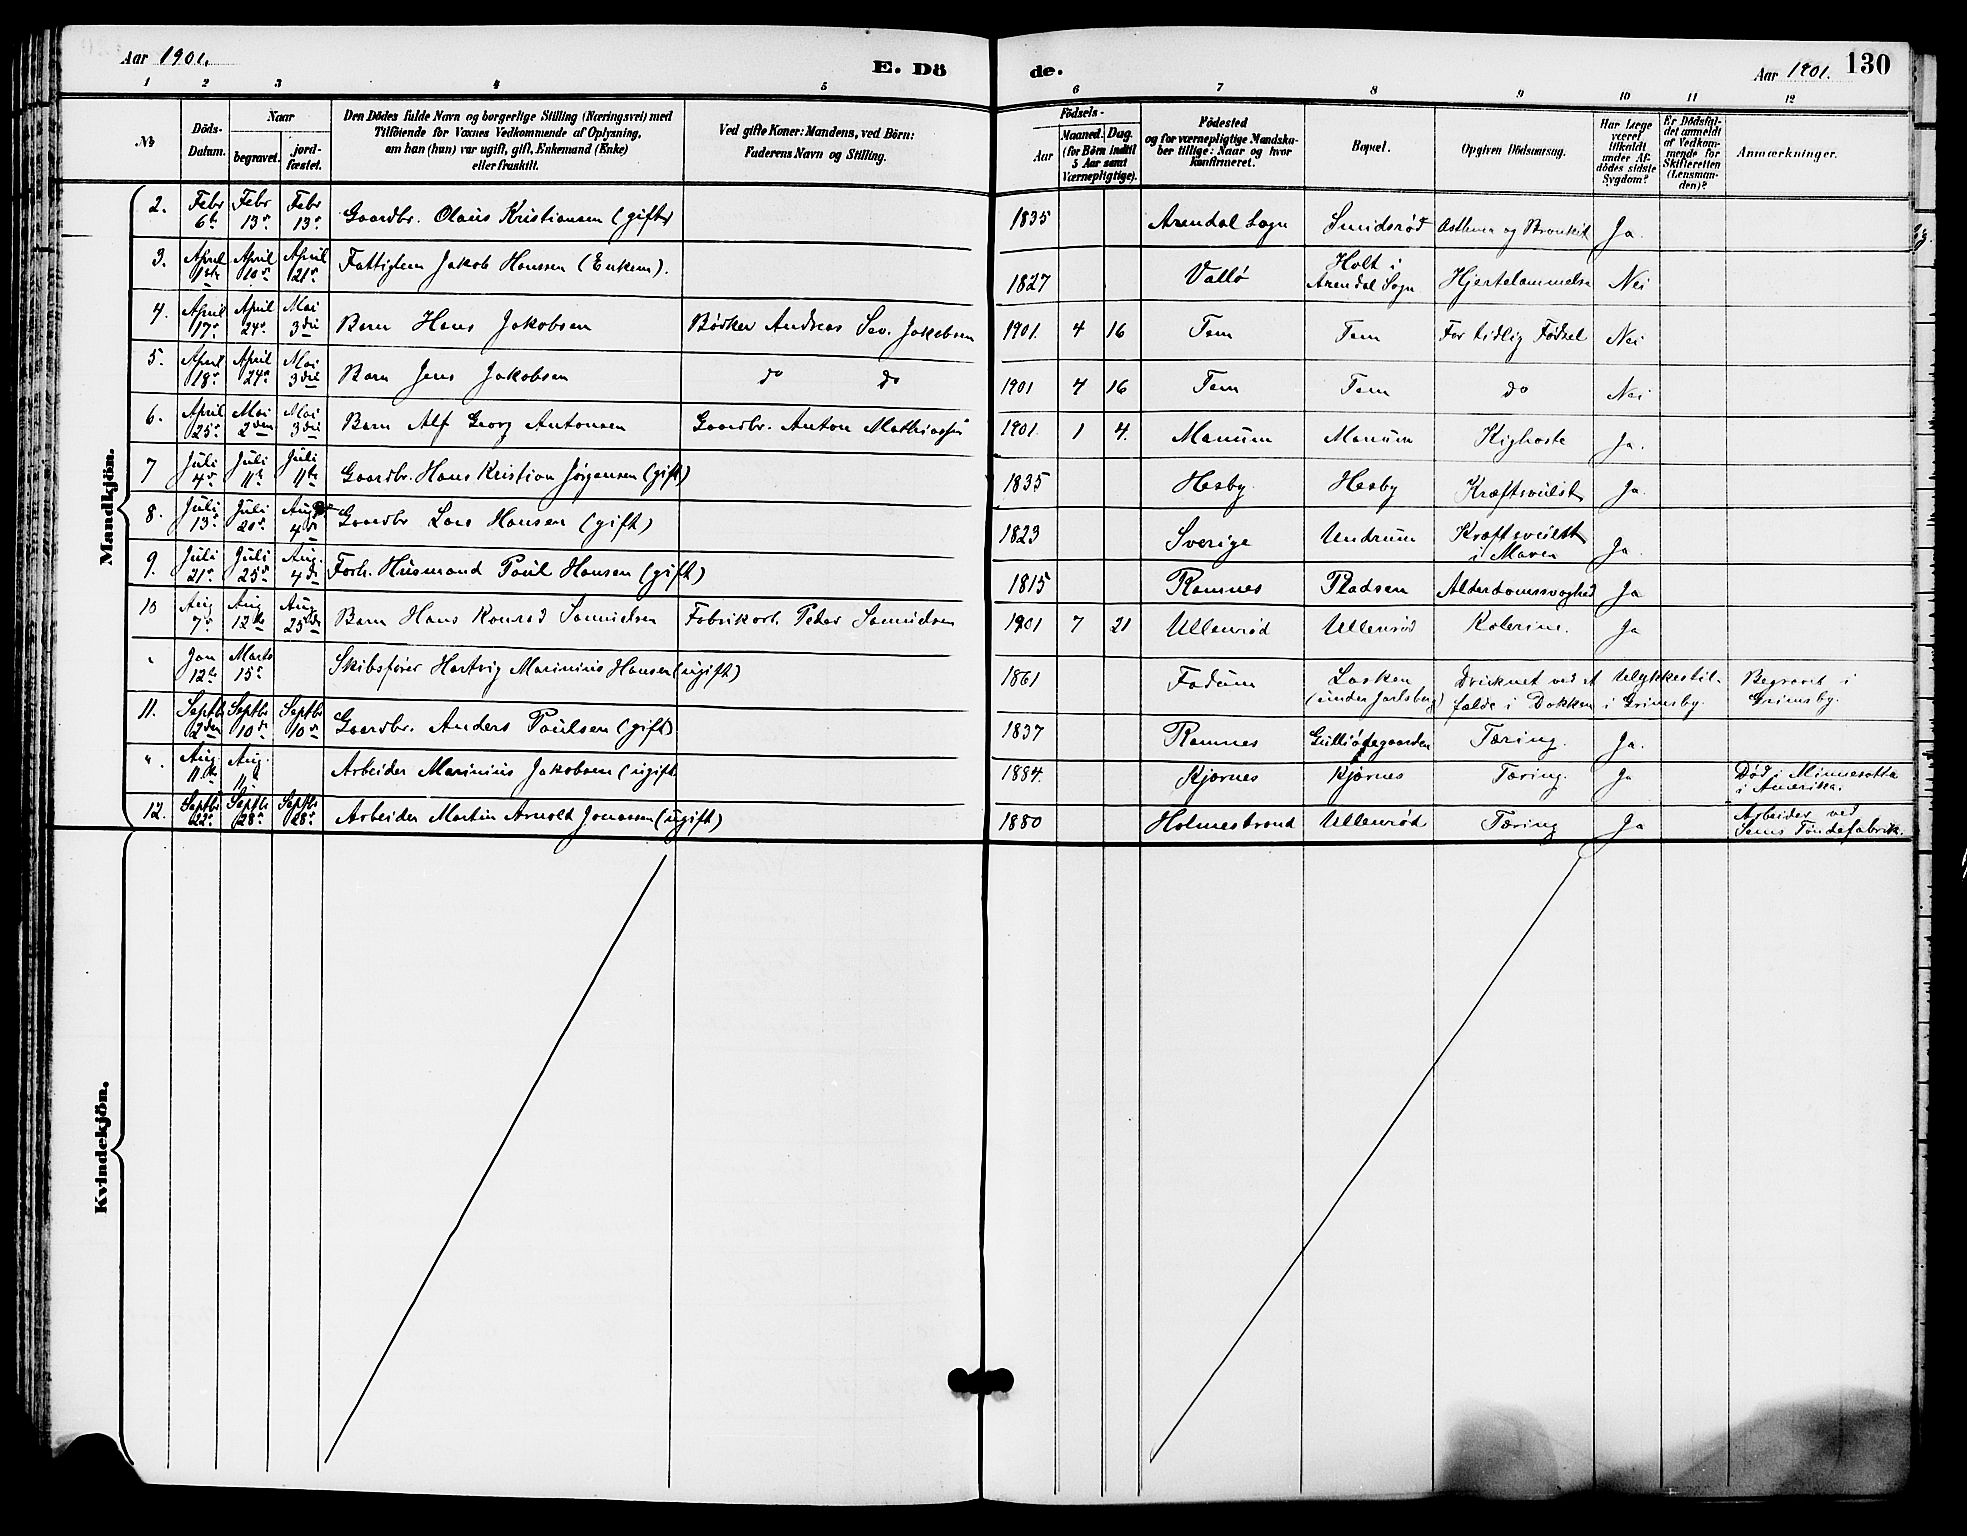 Aar 1901.
E. Dö
de.
Aar 1901. 130
1 2 3 4 5 6 7 8 9 10 11 12
No
Döds-
Datum.
Naar
begravet.
jord-
fæstet.
Den Dödes fulde Navn og borgerlige Stilling (Næringsvei) med
Tilföiende for Voxnes Vedkommende af Oplysning,
om han (hun) var ugift, gift, Enkemand (Enke)
eller fraskilt.
Ved gifte Koner: Mandens, ved Börn:
Faderens Navn og Stilling.
Födsels-
Aar
Maaned. Dag.
(for Börn indtil
5 Aar samt
Værnepligtige).
Födested
og for værnepligtige Mandska-
ber tillige: Naar og hvor
konfirmeret.
Bopæl.
Opgiven Dödsaarsag.
Har Læge
været
tilkaldt
under Af-
dödes sidste
Sygdom?
Er Dödsfal-
det anmeldt
af Vedkom-
mende for
Skifteretten
(Lensman-
den)?
Anmærkninger.
Mandkjön.
2. Febr 6te Febr 13de Febr 13de Gaardbr. Olaus Kristiansen (gift) 1835 Arendal Sogn Smidsrød Asthma og Bronkit Ja.
3. April 1ste April 10de April 21de Fattiglem Jakob Hanssen (Enkem). 1827 Vallø Holt i Arendal Sogn Hjertelammelse Nei
4. April 17de April 24de Mai 3die Barn Hans Jakobsen Bødker Andreas Sev. Jakobsen 1901. 4 16 Tem Tem For tidlig Fødsel Nei
5. April 18de April 24de Mai 3die Barn Jens Jakobsen do do 1901 4 16 Tem Tem do Nei
6. April 25de Mai 2den Mai 3die Barn Alf Georg Antonsen Gaardbr. Anton Mathiassen 1901. 1 4. Manum Manum Kighoste Ja.
7 Juli 4de Juli 11te Juli 11te Gaardbr. Hans Kristian Jørgensen (gift) 1835 Hesby. Hesby Kræftsvulst Ja.
8. Juli 13de Juli 20de Aug 4de Gaardbr Lars Hansen (gift) 1823 Sverige Undrum Kræftsvulst i Maven Ja.
9. Juli 21de Juli 25de Aug. 4de Forh. Husmand Paul Hansen (gift) 1815 Ramnes Pladsen Alderdomssvaghed Ja
10 Aug 7de Aug 12te Aug 25de Barn Hans Konrad Samuelsen Fabrikarb. Peder Samuelsen 1901 7 21 Ullenrød Ullenrød Kolerine. Ja
" Jan 12te Marts 15de Skibsfører Hartvig Marinius Hansen (ugift) 1861 Fadum Lasken (under Jarlsberg) Druknet ved et Ulykkestil-
fælde i Dokken i Grimsby. Begravet i Grimsby.
11. Septbr 2den Septbr 10de Septbr 10de Gaardbr. Anders Paulsen (gift) 1837 Ramnes Tæring. Ja.
". Aug. 11te Aug. Arbeider Marinius Jakobsen (ugift 1884. Kjærnes Kjærnes Tæring. Ja Død i Minnesotta i Amerika.
12. Septbr 22de Septbr 28de Septbr 28de Arbeider Martin Arnolt Jonassen (ugift) 1880 Holmestrand Ullenrød Tæring Ja Arbeider ved Sems Tøndefabrik.
Kvindekjön.